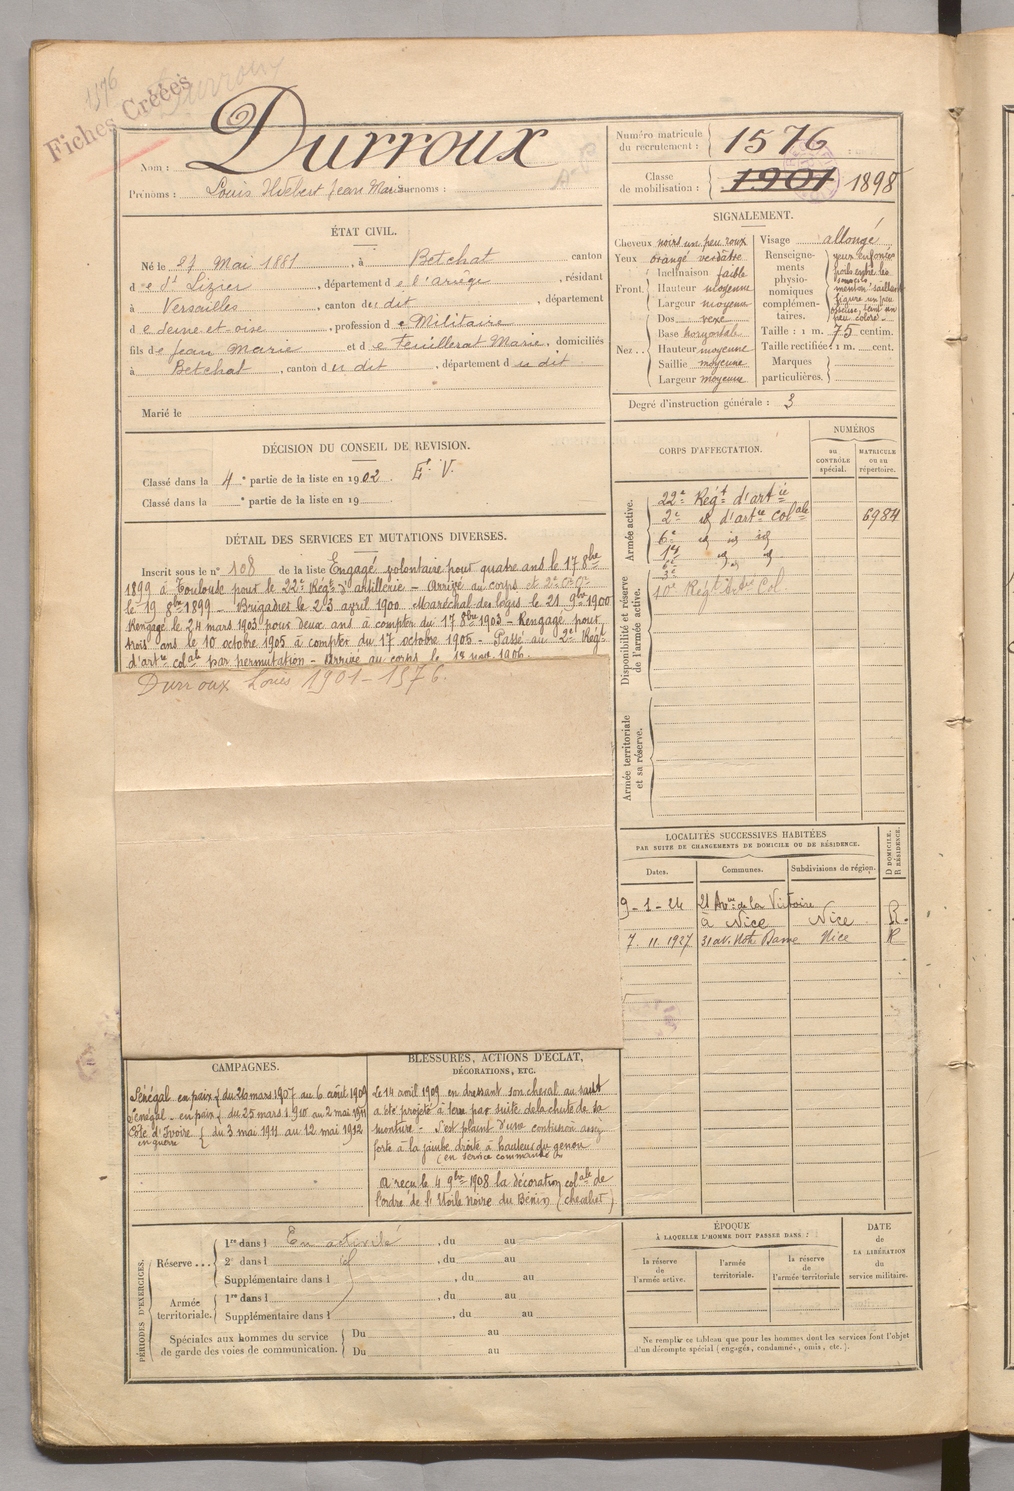 1576
Durroux
Fiches Créées
Nom : Durroux
Prénoms : Louis Huebert Jean Marie Surnoms :
Numéro matricule du recrutement : 1576
Classe de mobilisation : 1901 1898
ÉTAT CIVIL.
Né le 27 Mai 1881, à Betchat canton
d e St Lizier, département d e l'ariège, résidant
à Versailles, canton du dit, département
d e seine-et-oise, profession d e Militaire
fils de Jean Marie et d e Feuillerat Marie, domiciliés
à Betchat, canton d u dit, département d u dit
Marié le
SIGNALEMENT.
Cheveux noirs un peu roux
Yeux orangé verdâtre
Front. Inclinaison faible
Hauteur moyenne
Largeur moyenne
Nez.. Dos vexe
Base horizontale
Hauteur moyenne
Saillie moyenne
Largeur moyenne
Visage allongé
Renseignements physionomiques complémentaires. yeux enfoncés poils entre les sourcils menton saillant figure un peu osseuse, teint un peu coloré.
Taille : 1 m. 75 centim.
Taille rectifiée : 1 m. cent.
Marques particulières.
Degré d'instruction générale : 3
DÉCISION DU CONSEIL DE REVISION.
Classé dans la 4e partie de la liste en 1902 Eé V.
Classé dans la e partie de la liste en 19
DÉTAIL DES SERVICES ET MUTATIONS DIVERSES.
Inscrit sous le n° 108 de la liste Engagé volontaire pour quatre ans le 17 8bre
1899 à Toulouse pour le 22e Régt d'artillerie - Arrivé au corps et 2e Cr Cr
le 19 8bre 1899 - Brigadier le 23 avril 1900 - Maréchal des logis le 21 9bre 1900
Rengagé le 24 mars 1903 pour deux ans à compter du 17 8bre 1903 - Rengagé pour
trois ans le 10 octobre 1905 à compter du 17 octobre 1905 - Passé au 2e Régt
d'artie colale par permutation - Arrivé au corps le 18 nov. 1906.
Durroux Louis 1901-1576.
CORPS D'AFFECTATION.
NUMÉROS
au CONTRÔLE spécial.
MATRICULE ou au répertoire.
Armée active.
22e Régt d'artie
2e id d'artie Colale 6984
6e id id id
Disponibilité et réserve de l'armée active.
10e Régt Col.
Armée territoriale et sa réserve.
LOCALITÉS SUCCESSIVES HABITÉES
PAR SUITE DE CHANGEMENTS DE DOMICILE OU DE RÉSIDENCE.
Dates. Communes. Subdivisions de région. D DOMICILE. R RÉSIDENCE.
9-1-24 21 Avue de la Victoire
à Nice Nice R.
7.11.1927 31 av. Notre Dame Nice R
CAMPAGNES.
Sénégal en paix du 26 mars 1907 au 6 août 1909
Sénégal - en paix du 25 mars 1910 au 2 mai 1911
Côte d'Ivoire du 3 mai 1911 au 12 mai 1912
en guerre
BLESSURES, ACTIONS D'ÉCLAT,
DÉCORATIONS, ETC.
Le 14 avril 1909 en dressant son cheval au saut
a été projeté à terre par suite de la chute de sa
monture - s'est plaint d'une contusion assez
forte à la jambe droite à hauteur du genou
(en service commandé)
A reçu le 4 9bre 1908 la décoration colale de
l'ordre de l'Etoile Noire du Bénin (chevalier)
PÉRIODES D'EXERCICES.
Réserve ... 1re dans l En activité, du au
2e dans l id, du au
Supplémentaire dans l , du au
Armée territoriale. 1re dans l , du au
Supplémentaire dans l , du au
Spéciales aux hommes du service de garde des voies de communication. Du au
Du au
ÉPOQUE
À LAQUELLE L'HOMME DOIT PASSER DANS :
la réserve de l'armée active.
l'armée territoriale.
la réserve de l'armée territoriale
DATE de LA LIBÉRATION du service militaire.
Ne remplir ce tableau que pour les hommes dont les services font l'objet
d'un décompte spécial (engagés, condamnés, omis, etc.).